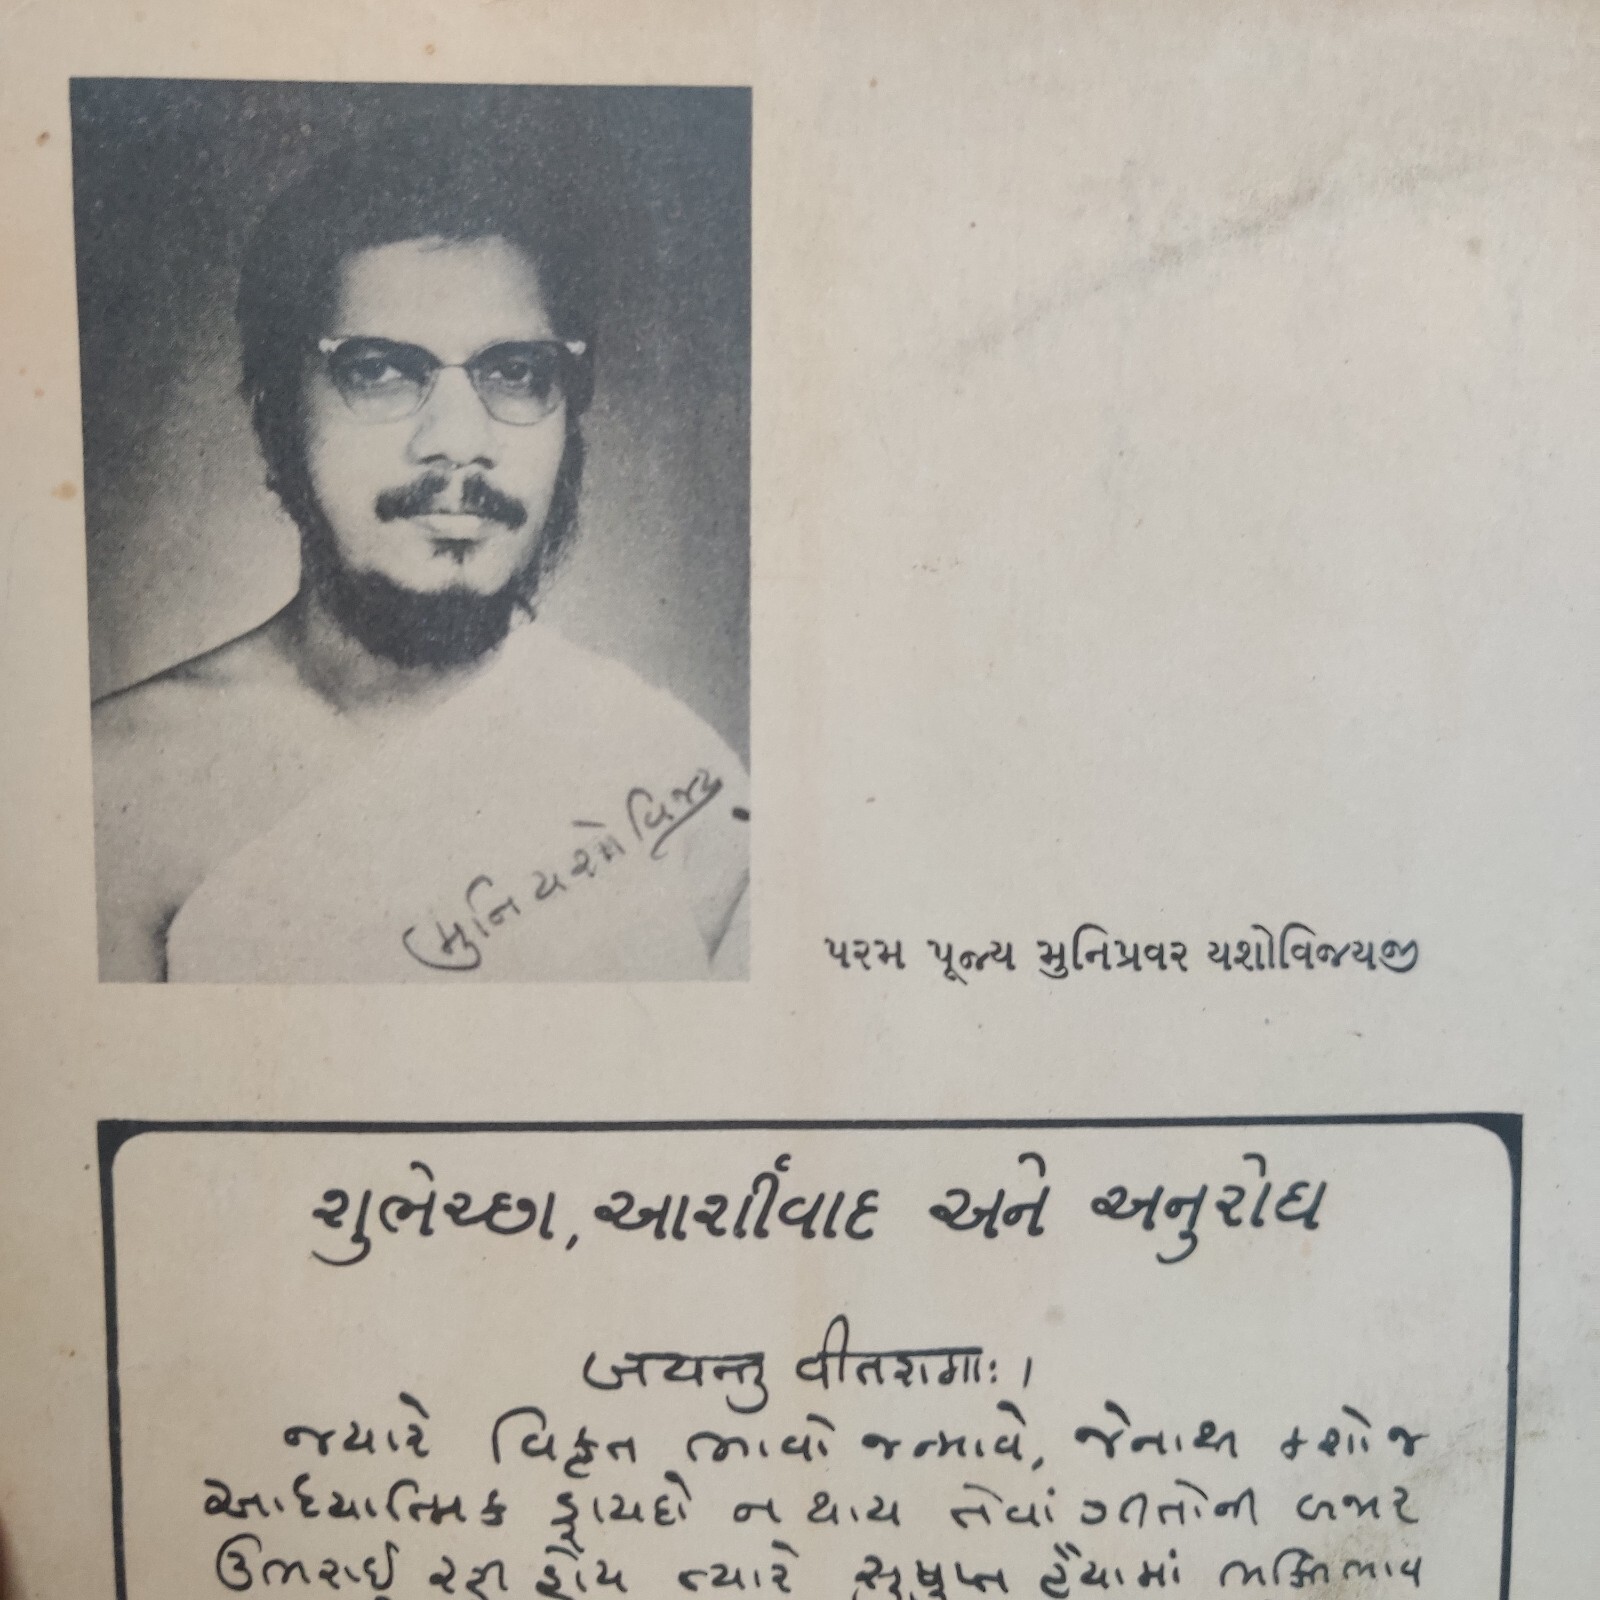 મુનિ યશોવિજય
પરમ પૂજ્ય મુનિપ્રવર યશોવિજયજી
શુભેચ્છા, આર્શીવાદ અને અનુરોધ
जयन्तु वीतरागाः।
જ્યારે વિકૃત ભાવો જન્માવે, જેનાથી કશોજ
આધ્યાત્મિક ફાયદો ન થાય તેવાં ગીતોની બજાર
ઉભરાઈ રહી હોય ત્યારે સુષુપ્ત હૈયામાં ભક્તિભાવ